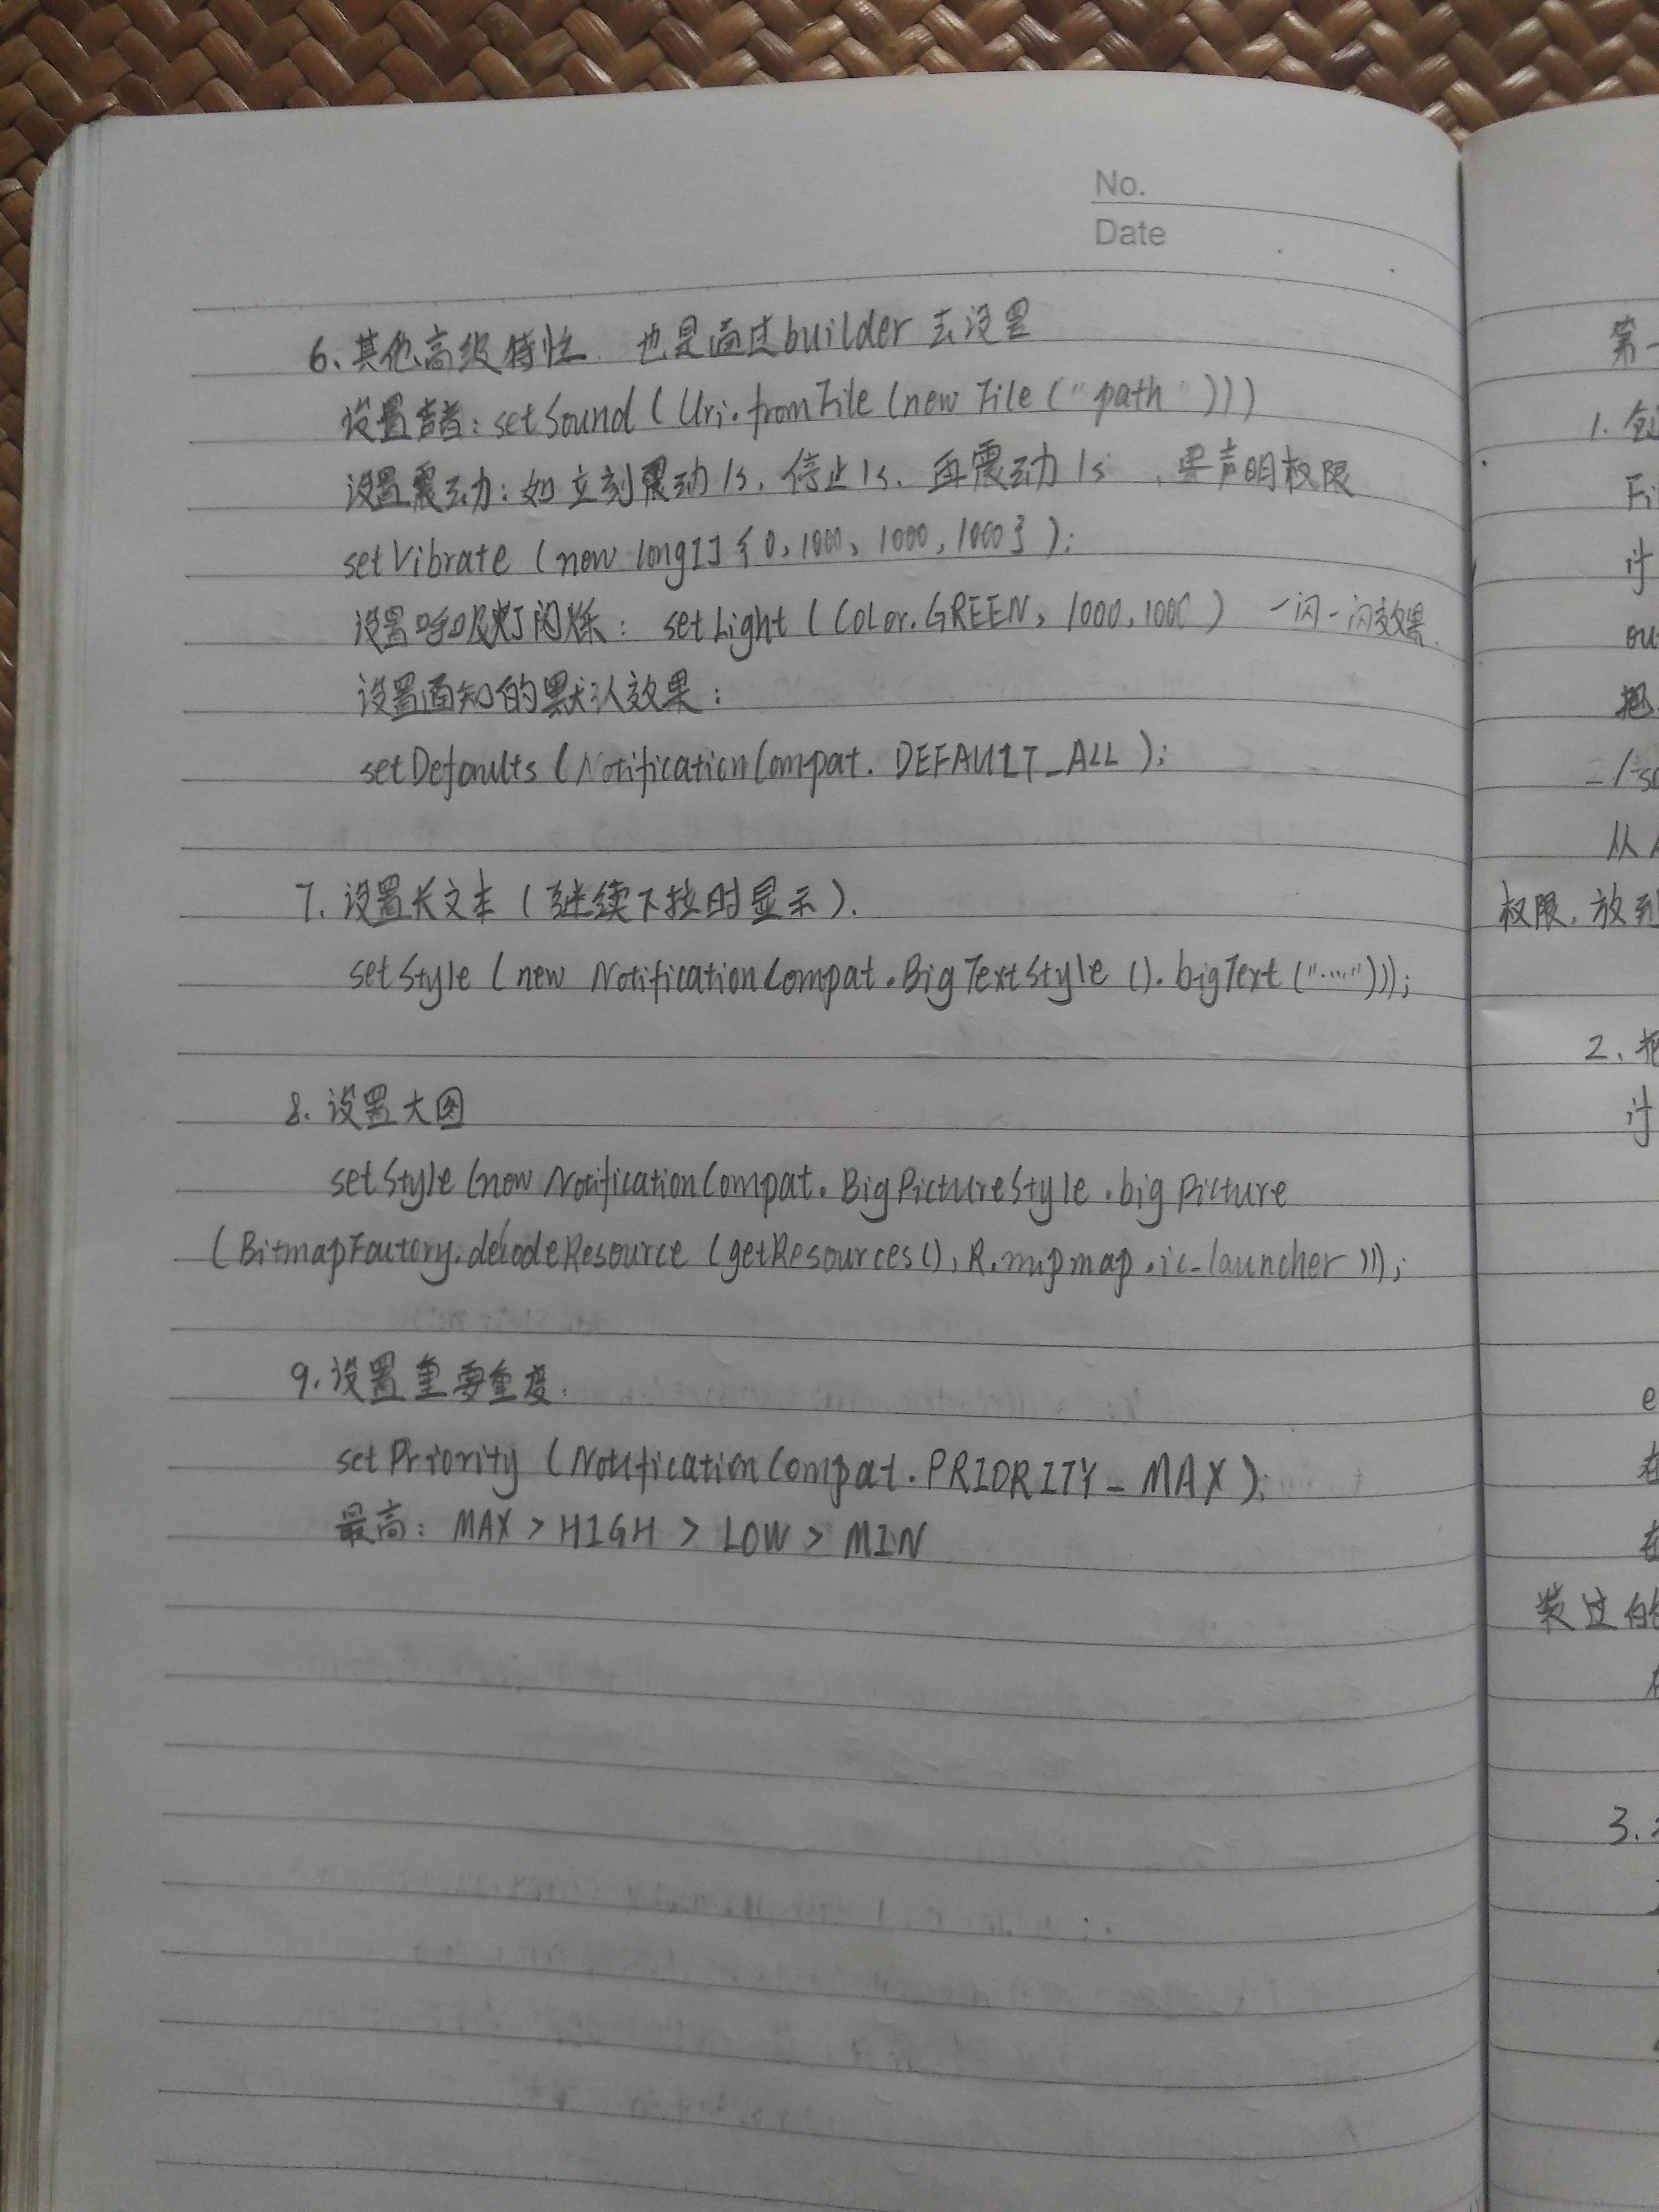 No.
Date
6、其他高级特性. 也是通过builder去设置
设置声音: setSound (Uri.fromFile (new File ("path")))
设置震动: 如立刻震动1s, 停止1s, 再震动1s , 要声明权限
setVibrate (new long[] { 0, 1000, 1000, 1000 } );
设置呼吸灯闪烁: setLight ( Color.GREEN, 1000, 1000 ) 一闪一闪效果
设置通知的默认效果:
setDefaults (NotificationCompat. DEFAULT_ALL );
7. 设置长文本 ( 继续下拉时显示 ).
setStyle ( new NotificationCompat.BigTextStyle (). bigText ("......"));
8. 设置大图
setStyle (new NotificationCompat. BigPictureStyle .bigPicture
(BitmapFactory.decodeResource (getResources(), R.mipmap.ic_launcher )));
9. 设置重要重度.
setPriority (NotificationCompat.PRIORITY_MAX );
最高: MAX > HIGH > LOW > MIN
第一
1. 创
Fi
讨
ou
把
从
权限, 放到
2、把
讨
e
在
在
装过的
3.